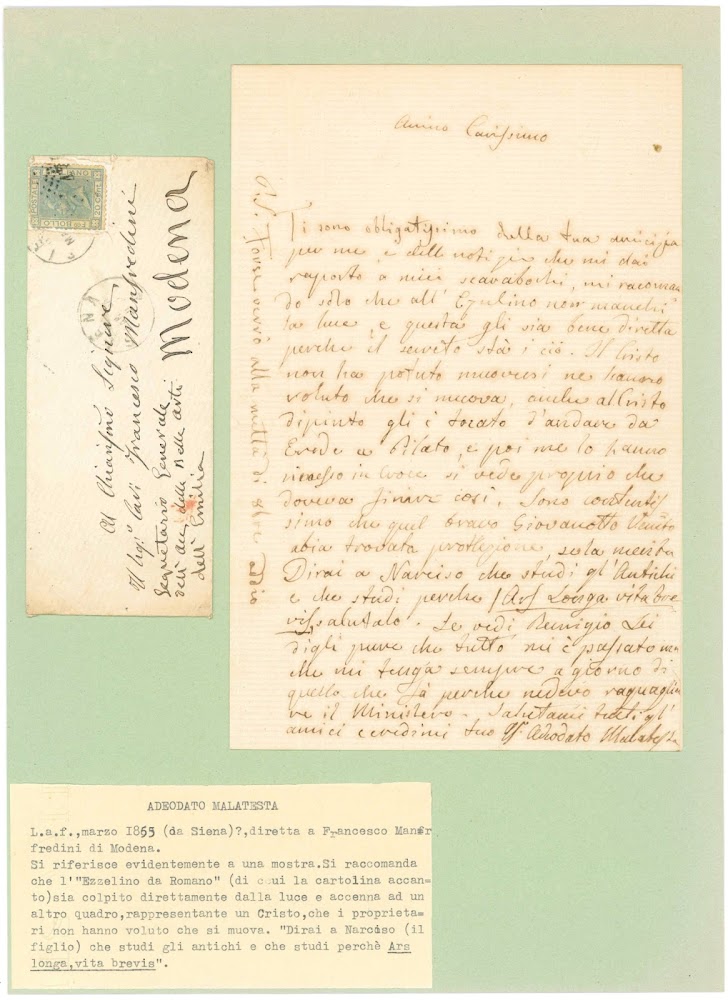 Amico Carissimo
Ti sono obligatissimo della tua amicizia
per me, e delle notizie che mi dai
raporto a miei scarabochi, mi racoman
do solo che all' Ezelino non manchi
la luce, e questa gli sia bene diretta
perche il secreto stà i ciò. Il Cristo
non ha potuto muoversi ne hanno
voluto che si mueva, anche al Cristo
dipinto gli è tocato d'andare da
Erode a Pilato, e poi me lo hanno
messo in Croce si vede proprio che
doveva finire così. Sono contentis
simo che quel bravo Giovanotto
abia trovata protezione, se la merita
Dirai a Narciso che studi gl'Antichi
e che studi perche (Ars Longa vita bre
vis, salutalo. Se vedi Benigio Lei
digli pure che tutto mi è passato
che mi tenga sempre a giorno di
quello che fà perche
re il Ministero. Salutami tutti gl'
amici e credimi tuo Aff. Adeodato Malatesta
P.S. Forse verrò alla metà di
FRANCO BOLLO
POSTALE
ITALIANO
C. VENTI
20
Al Chiarissmo Signore
Il Sigr Cav. Francesco Manfredini
Segretario Generale
dell'Acc. delle Belle Arti
dell'Emilia
Modena
ADEODATO MALATESTA
L.a.f.,marzo I855 (da Siena)?,diretta a Francesco Manfr
fredini di Modena.
Si riferisce evidentemente a una mostra.Si raccomanda
che l'"Ezzelino da Romano" (di cui la cartolina accan=
to)sia colpito direttamente dalla luce e accenna ad un
altro quadro,rappresentante un Cristo,che i proprieta=
ri non hanno voluto che si muova. "Dirai a Narciso (il
figlio) che studi gli antichi e che studi perchè Ars
longa,vita brevis".